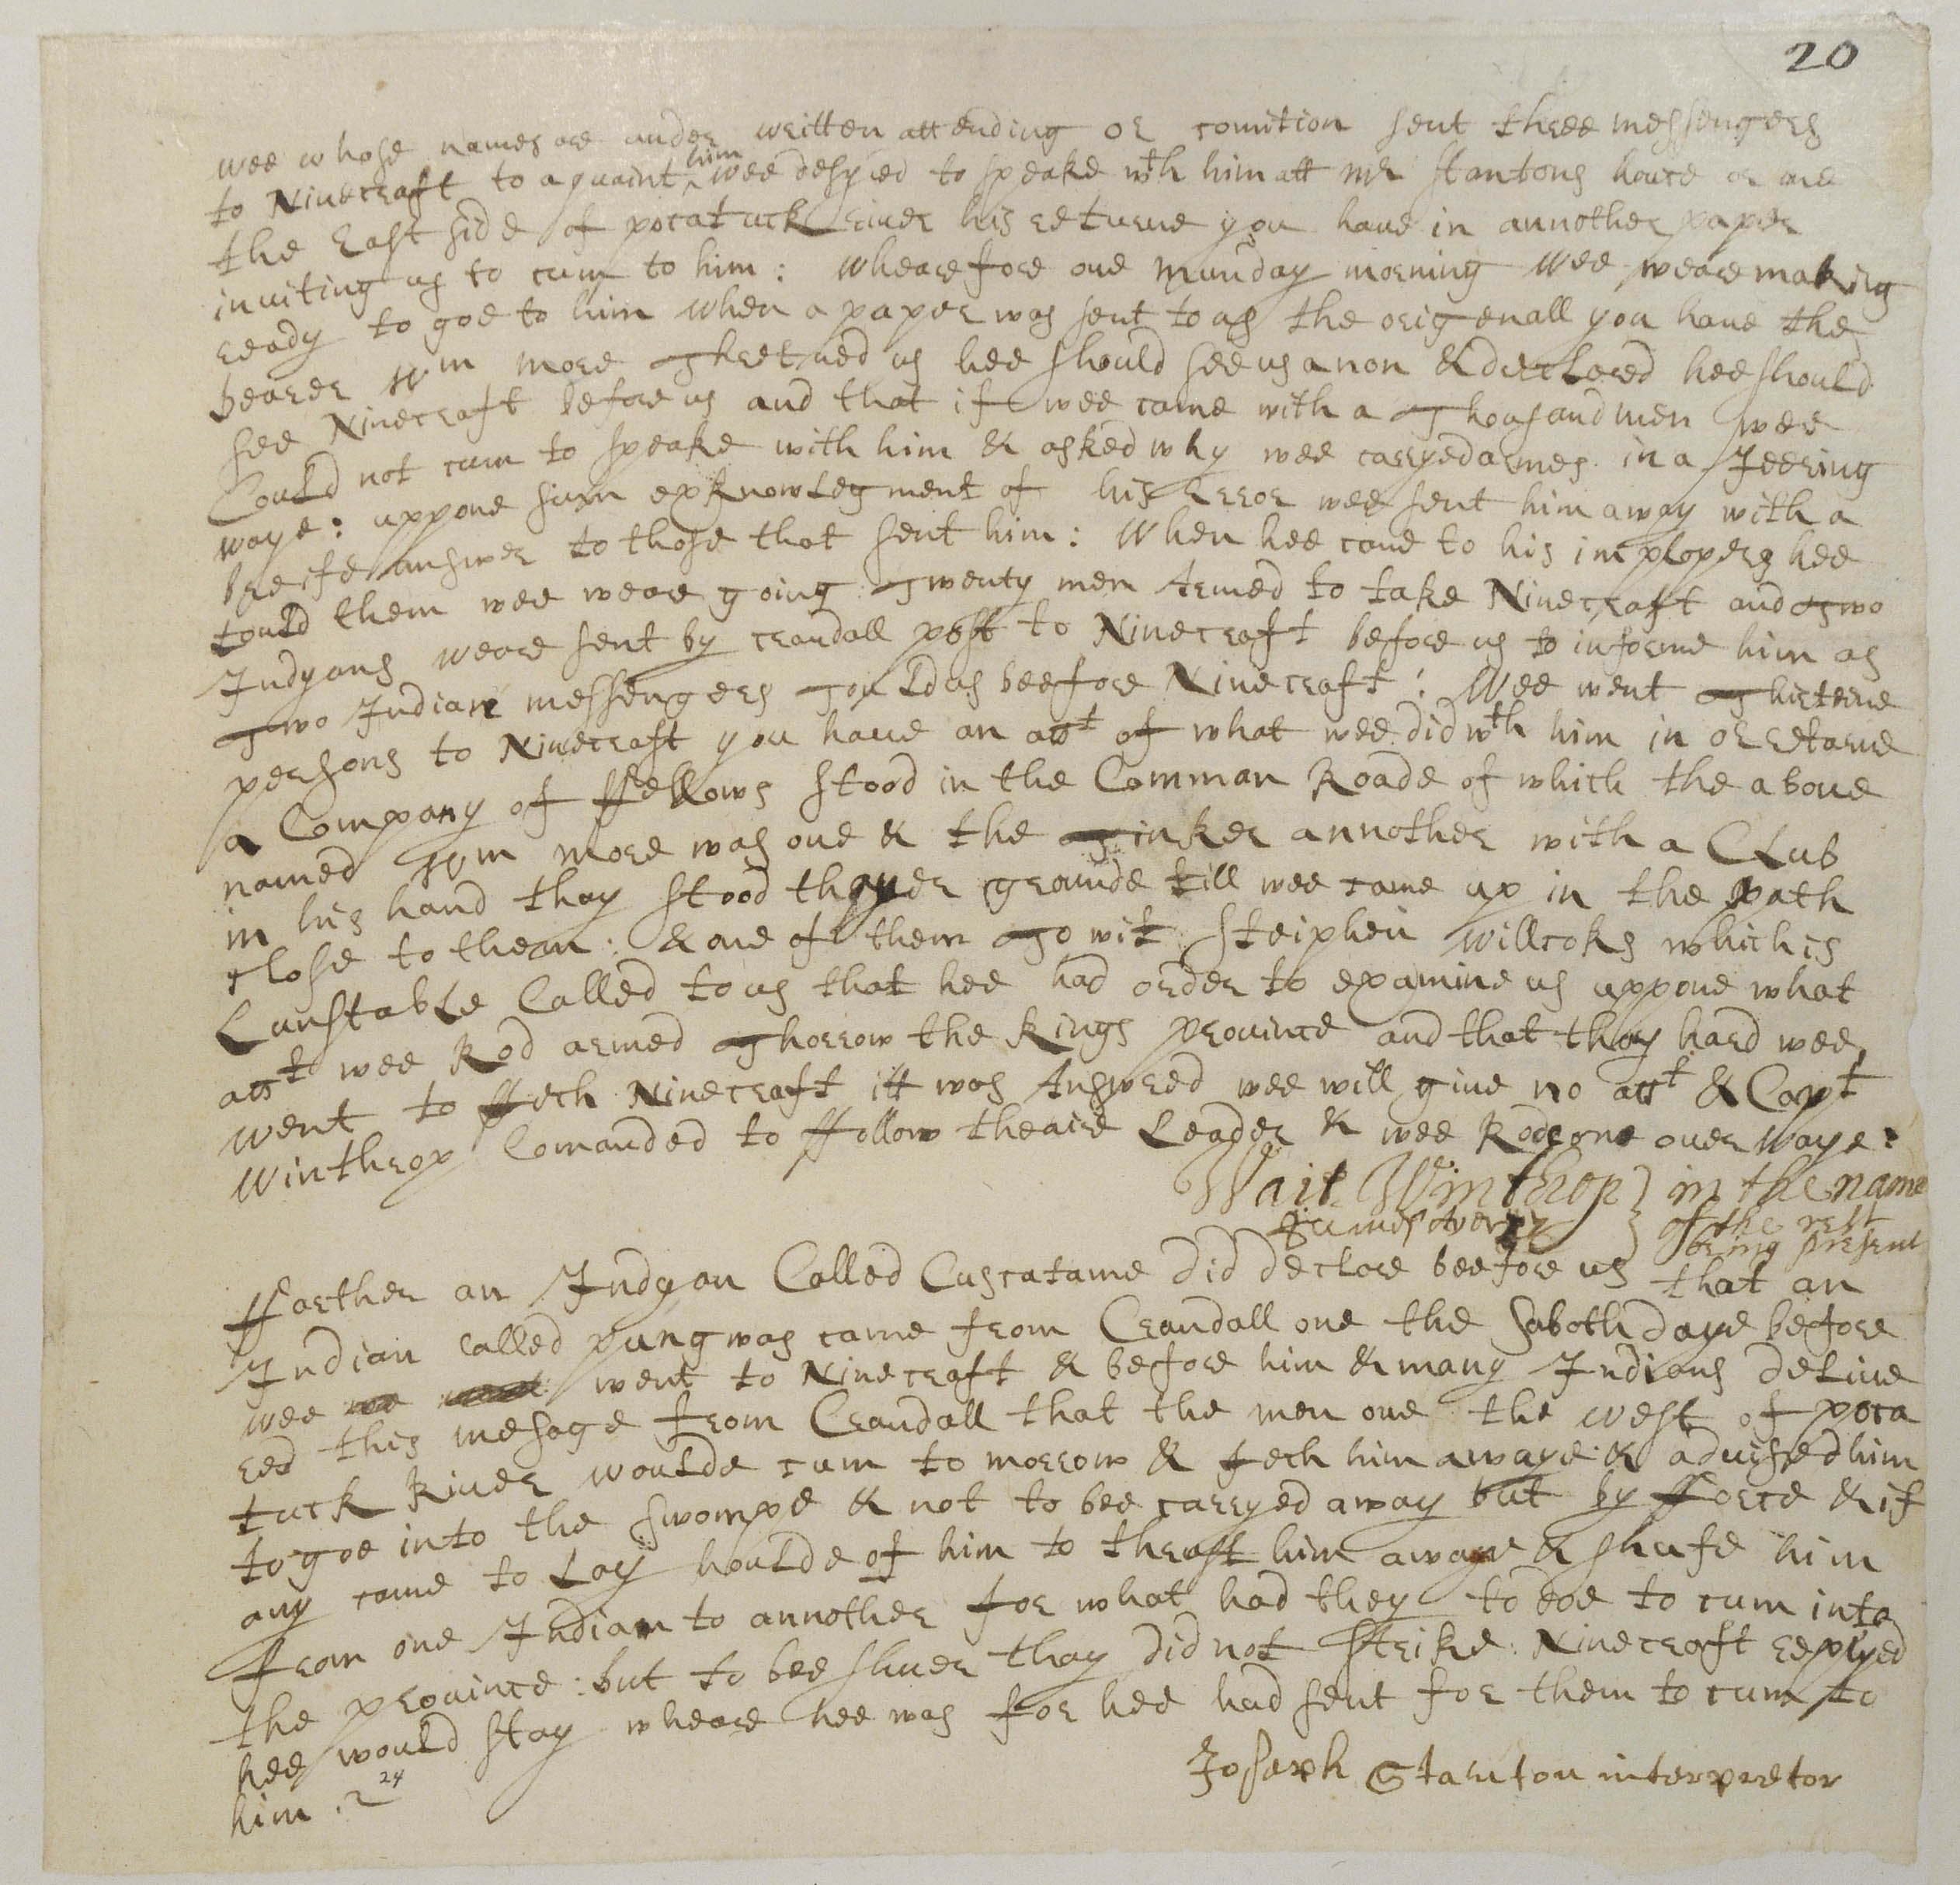 20
wee whose names are under written attending or comition sent three messengers
to Ninecraft to aquaint him wee desyred to speake wth him att mr Stantons house or one
the East side of pocatuck river his returne you have in annother paper
inuiting us to cum to him : Whearefore one munday morning Wee weare making
ready to goe to him when a paper was sent to us the origenall you haue the
bearer som more Thretned us hee should see us anon & declared hee should
see Ninecraft before us and that if wee came with a Thousand men wee
Could not cum to speake with him & asked why wee carryed armes in a Jeering
waye : uppone sum exknowlegment of his Error wee sent him away with a
breife answer to those that sent him : When hee came to his imployers hee
tould them wee weare going Twenty men Armed to take Ninecraft and Two
Indyans weare sent by crandall post to Ninecraft before us to informe him as
Two Indian messengers Tould us beefore Ninecraft : Wee went Thirteene
persons to Ninecraft you haue an actt of what wee did wth him in or returne
a Company of ffellows stood in the Common Roade of which the aboue
named som more was one & the Tinker annother with a Club
in his hand thay stood thayer grounde till wee came up in the path
close to them : & one of them To wit Steiphen Willcoks which is
Cunstable Called to us that hee had order to examine us uppone what
actt wee Rod armed Thorrow the Kings prouince and that thay hard wee
went to ffech Ninecraft itt was Answred wee will give no actt & Capt
Winthrop Comanded to ffollow theaire Leader & wee Rode one ouer waye :
Wait Winthrop } in the name
James Avery } of the rest
being present
ffarther an Indyan Called Cuscatame did declare beefore us that an
Indian called pungwas came from Crandall one the saboth daye before
wee went to Ninecraft & before him & many Indians deliue
red this mesage from Crandall that the men one the west of poca
tuck River woulde cum to morrow & fech him awaye & advised him
to goe into the swompe & not to bee carryed away but by fforce & if
any came to Lay houlde of him to thrust him awaye & shufe him
from one Indian to annother for what had they to doe to cum into
the prouince : but to bee shuer thay did not strike : Ninecraft replyed
hee would stay wheare hee was for hee had sent for them to cum to
him .
24
Joseph Stanton interpretor